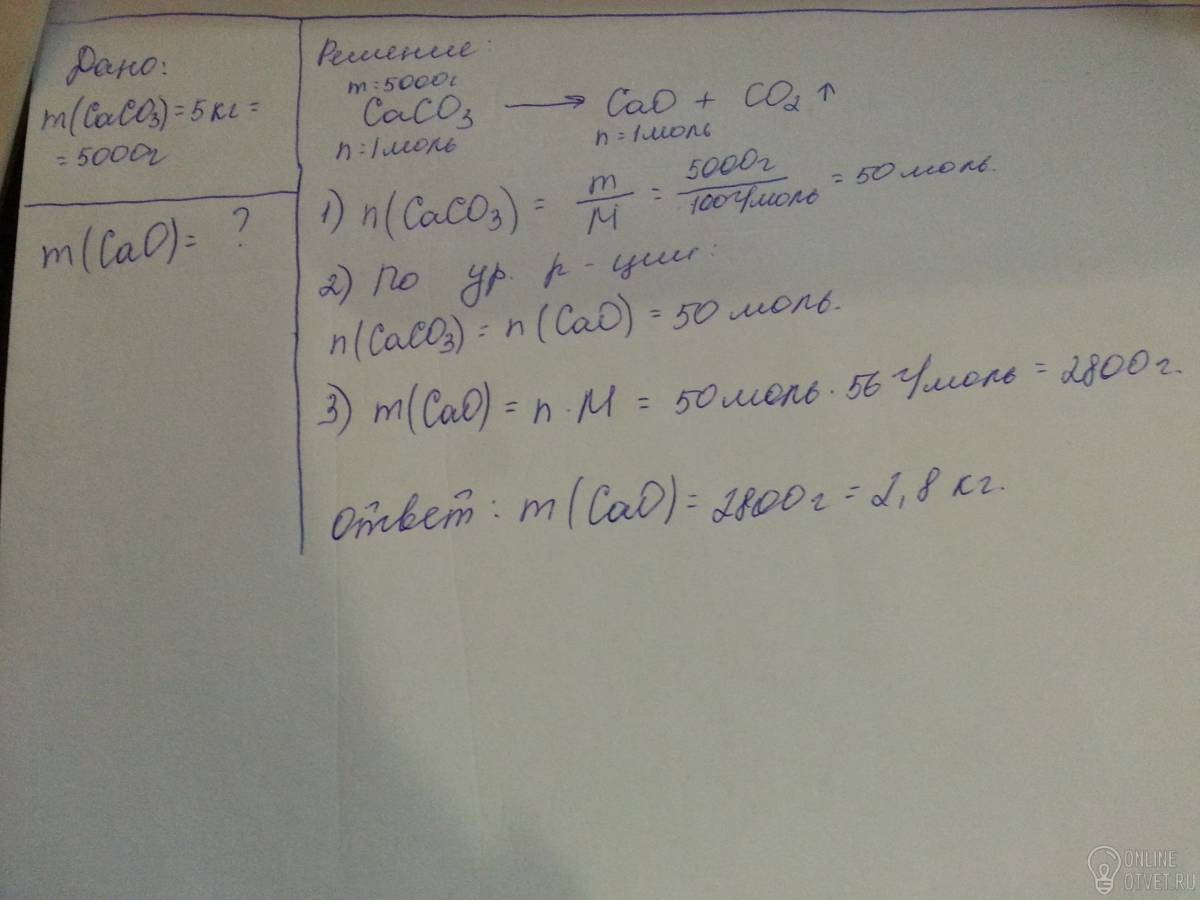 Дано:
m(CaCO₃)=5кг=
=5000г
m(CaO)= ?
Решение:
m=5000г
CaCO₃ ⟶ CaO + CO₂↑
n=1моль n=1моль
1) n(CaCO₃) = m/M = 5000г/100г/моль = 50 моль.
2) По ур. р-ции:
n(CaCO₃) = n(CaO) = 50 моль.
3) m(CaO) = n·M = 50моль·56г/моль = 2800г.
Ответ: m(CaO)=2800г=2,8кг.
ONLINE
OTVET.RU